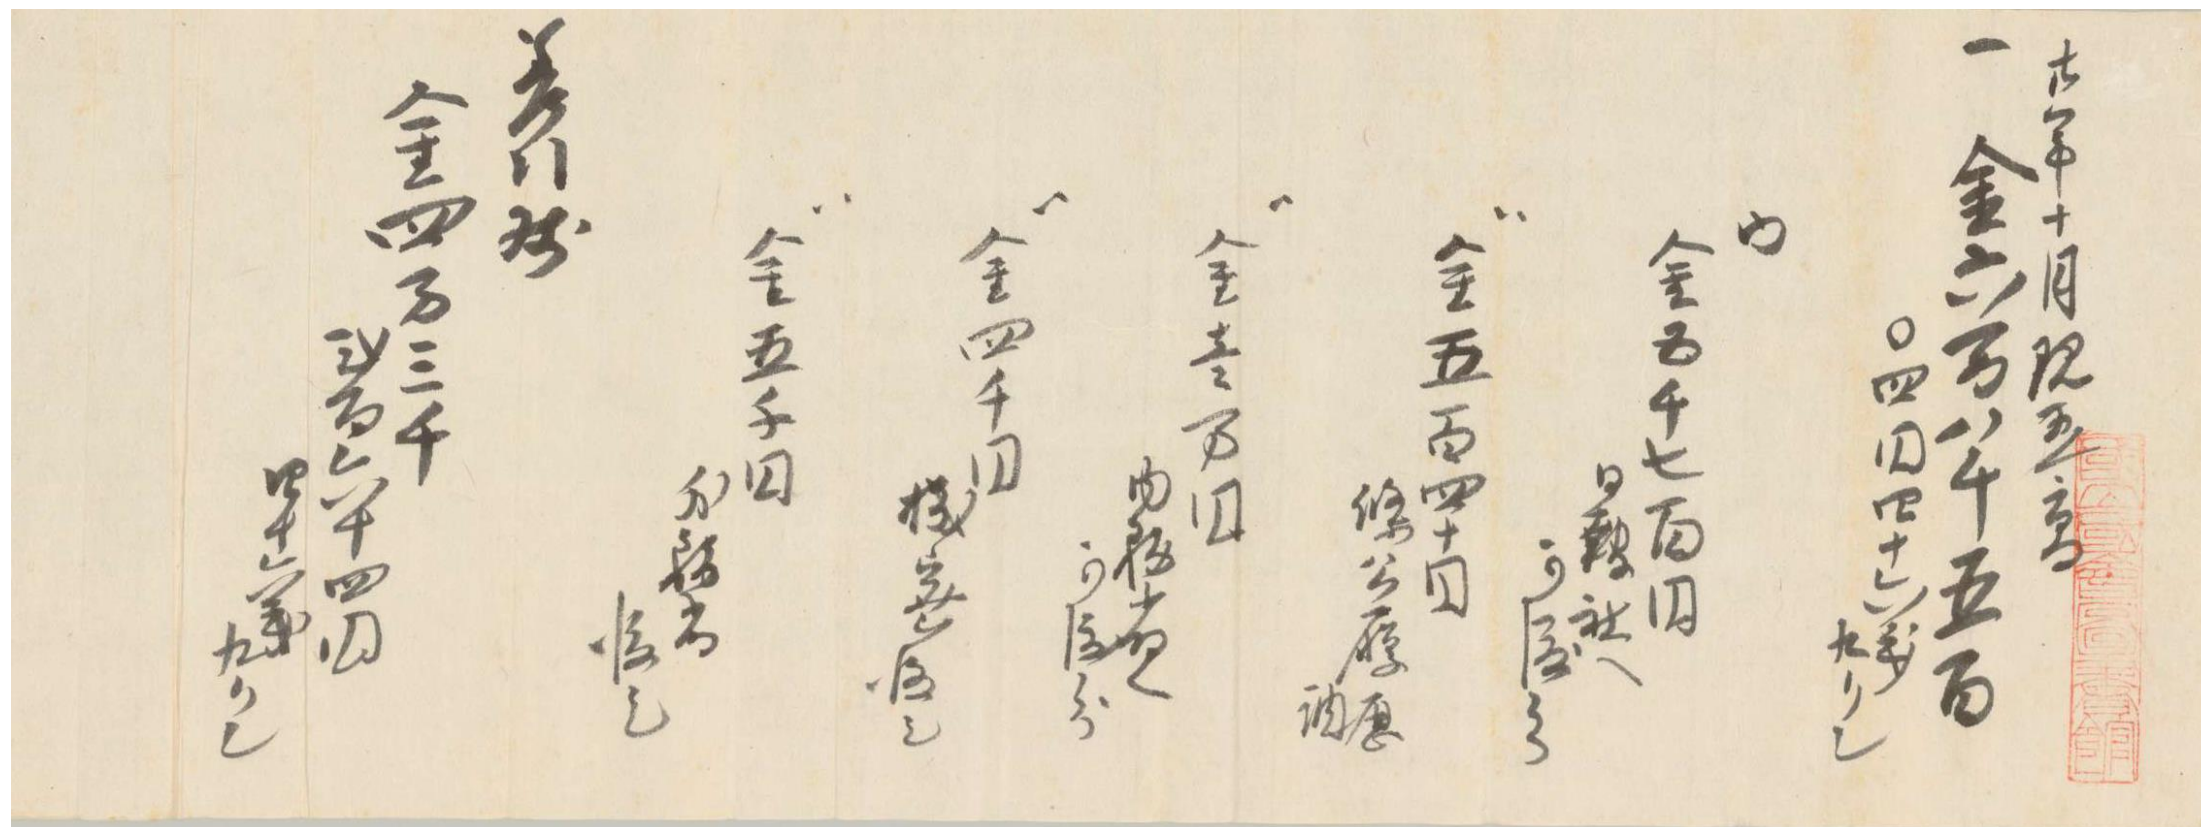 廿年十月現在高
一 金六万八千五百
〇四円四十六銭
九リン
内
金五千七百円
日報社へ
可渡分
〃
金五百四十円
條公履歴
調
〃
金壱万円
内務省へ
可渡分
〃
金四千円
機密渡し
〃
金五千円
外務省
渡し
差引残
金四万三千
弐百六十四円
四十六銭
九リン